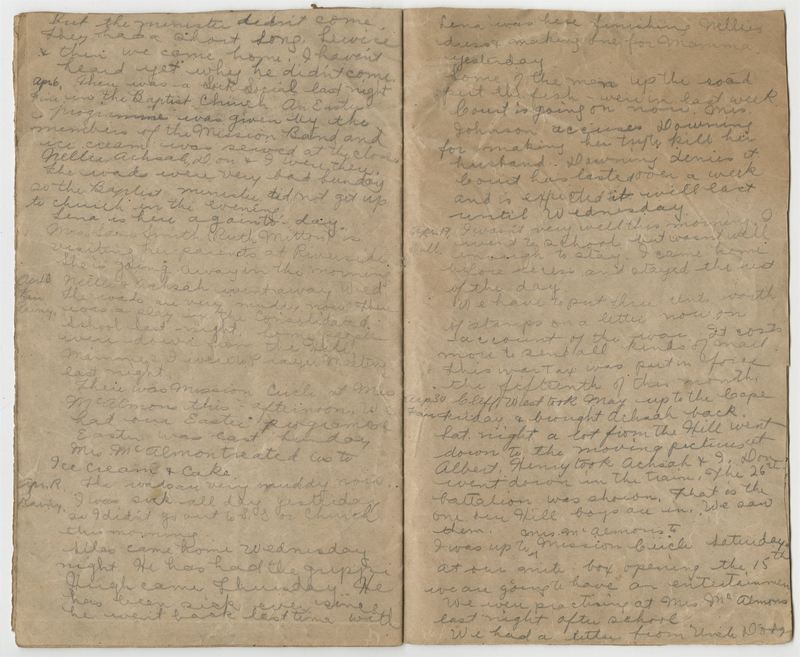 But the minister didn't come.
They had a short song service
& then we came home. I haven't
heard yet why he didn't come.
Apr 6, There was a social last night
Fine in the Baptist Church. An Easter
programme was given by the
members of the Mission Band and
ice cream was served at the close
Nellie Achsah, Don & I were there.
The roads were very bad Sunday
so the Baptist minister did not get up
to church in the evening.
Lena is here again to-day.
Mrs. Smith (Ruth Mitton) is
visiting her parents at Riverside
She is going away in the morning
Nellie & Achsah went away Wed
The roads are very muddy now. There
was a play in the Consolidated
School last night.
were down from the Hill
Mamma & I went to Prayer Meeting
last night.
There was Mission Circle at Mrs
McAlmon's this afternoon. We
had our Easter programme
Easter was last Sunday
Mrs McAlmon treated us to
Ice Cream & Cake.
The roads are very muddy now.
I was sick all day yesterday
so I didn't go out to S.S. or Church
this morning
Silas came home Wednesday
night He has had the grippe
Hugh came Thursday. He
has been sick ever since
he went back last time with
Lena was here finishing Nellie's
dress & making one for Mamma
yesterday
Some of the men up the road
put the fish weir in last week
Court is going on now. Mrs.
Johnson accuses Downing
for making her try & kill her
husband. Downing denies it
Court has lasted over a week
and is expected it will last
until Wednesday
Apr. 19, I wasn't very well this morning. I
went to school but wasn't well
enough to stay. I came home
before recess and stayed the rest
of the day.
We have to put three cents worth
of stamps on a letter now on
account of the war. It costs
more to send all kinds of mail
This war tax was put in force
the fifteenth of this month.
Apr 30 Cliff West took May up to the Cape
Fair Friday & brought Achsah back.
Sat. night a lot from the Hill went
down to the moving pictures at
Albert. Henry took Achsah & I. Don
went down in the train. The 26th
battalion was shown. That is the
one our Hill boys are in. We saw
them.
I was up to Mrs. McAlmon's to Mission Circle Saturday
at our mite box opening the 15th
we are going to have an entertainment
We were practising at Mrs McAlmons
last night after school
We had a letter from Uncle